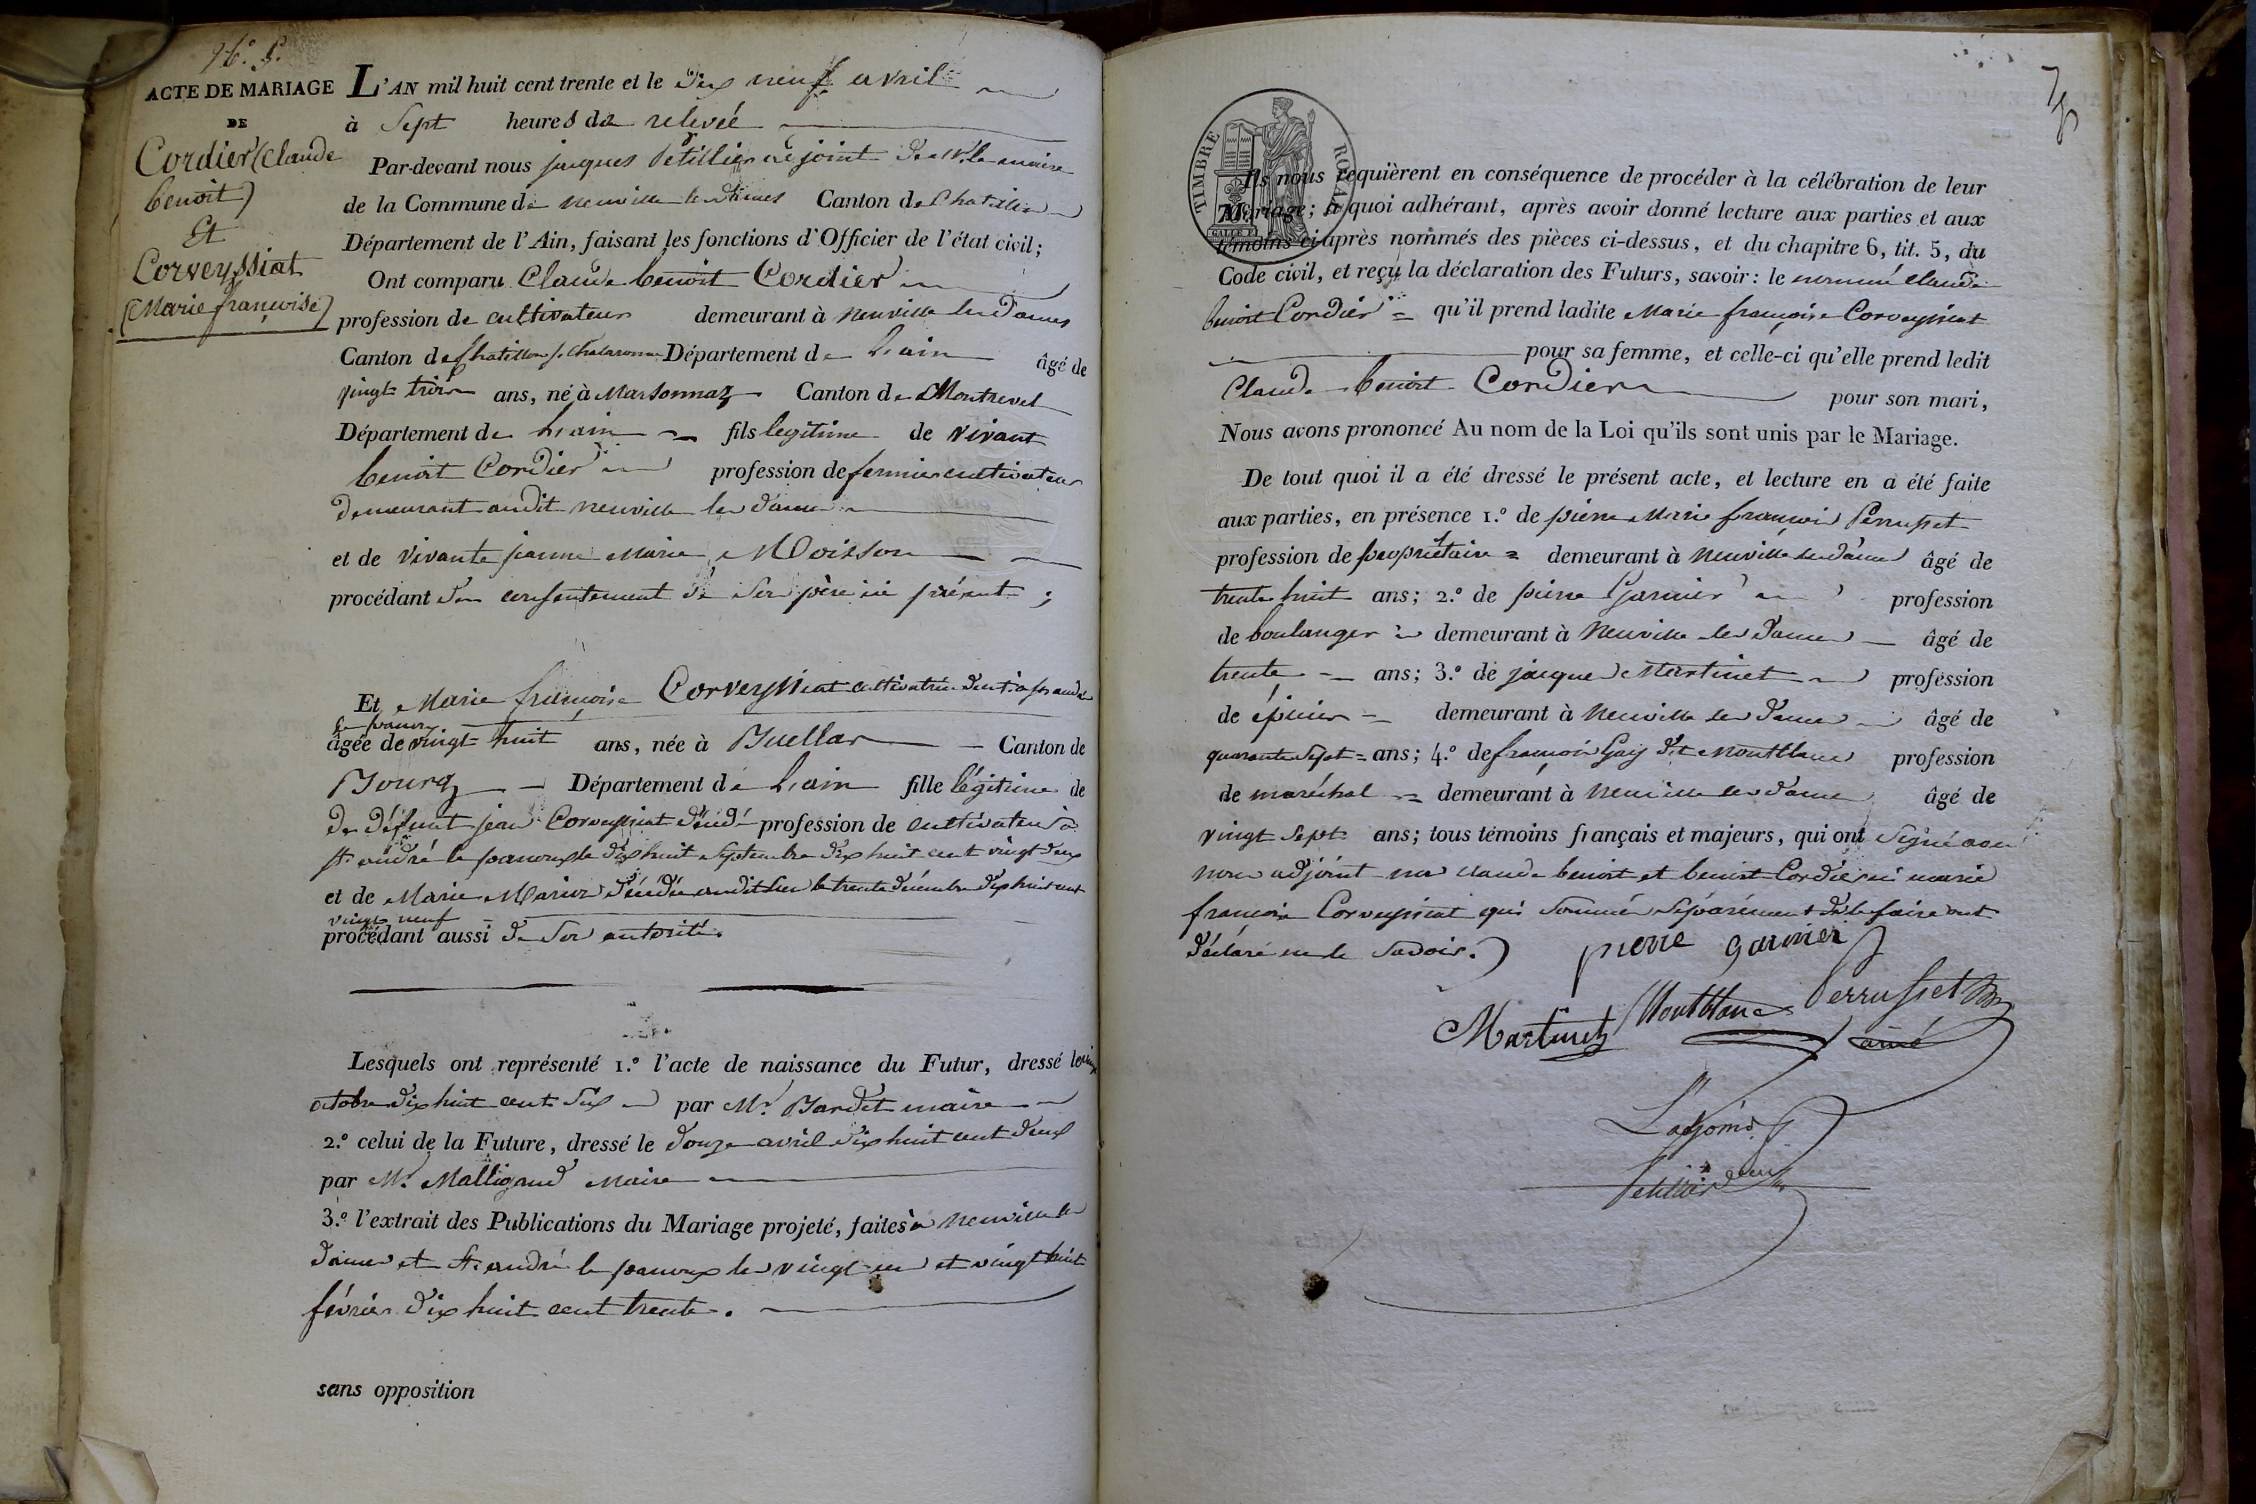 N.° 5.
ACTE DE MARIAGE
DE
Cordier (Claude
benoit)
Et
Corveyssiat
(Marie françoise)
L'AN mil huit cent trente et le dix neuf avril
à Sept heures de relevée
Par-devant nous jacques Petillier adjoint de Mr le maire
de la Commune de neuville les dames Canton de Chatillon
Département de l'Ain, faisant les fonctions d'Officier de l'état civil;
Ont comparu Claude benoit Cordier
profession de cultivateur demeurant à neuville les dames
Canton de Chatillon s. Chalaronne Département de L'ain âgé de
vingt trois ans, né à Marsonnaz Canton de Montrevel
Département de L'ain fils legitime de vivant
benoit Cordier profession de fermier cultivateur
demeurant audit neuville les dames
et de vivante jeanne Marie Moisson
procédant du consentement de son père ici présent ;
Et Marie françoise Corveyssiat cultivatrice demt à st andré
le panoux
âgée de vingt huit ans, née à Buellas Canton de
Bourg Département de L'ain fille légitime de
De défunt jean Corveyssiat décédé profession de cultivateur à
St andré le panoux le dix huit Septembre dix huit cent vingt deux
et de Marie décédée audit lieu le trente décembre dix huit cent
vingt neuf
procédant aussi de son autorité.
Lesquels ont représenté 1.° l'acte de naissance du Futur, dressé le
octobre dix huit cent Six par Mr. Bardet maire
2.° celui de la Future, dressé le douze avril dix huit cent deux
par Mr. Malligand Maire
3.° l'extrait des Publications du Mariage projeté, faites à neuville les
dames et St. andré le panoux les vingt un et vingt huit
février dix huit cent trente.
sans opposition
75
TIMBRE ROYAL
Ils nous requièrent en conséquence de procéder à la célébration de leur
Mariage; à quoi adhérant, après avoir donné lecture aux parties et aux
témoins ci-après nommés des pièces ci-dessus, et du chapitre 6, tit. 5, du
Code civil, et reçu la déclaration des Futurs, savoir: le nommé claude
benoit Cordier = qu'il prend ladite Marie françoise Corveyssiat
pour sa femme, et celle-ci qu'elle prend ledit
Claude benoit Cordier pour son mari,
Nous avons prononcé Au nom de la Loi qu'ils sont unis par le Mariage.
De tout quoi il a été dressé le présent acte, et lecture en a été faite
aux parties, en présence 1.° de pierre Marie françois Perrusset
profession de propriétaire = demeurant à neuville les dames âgé de
trente huit ans; 2.° de pierre Garnier profession
de boulanger demeurant à neuville les dames âgé de
trente ans; 3.° de jacques Martinet profession
de épicier demeurant à neuville les dames âgé de
quarante sept = ans; 4.° de françois Guy dit Montblanc profession
de maréchal = demeurant à neuville les dames âgé de
vingt Sept ans; tous témoins français et majeurs, qui ont signé avec
nous adjoint non claude benoit et benoit Cordier ni marie
françoise Corveyssiat qui sommés séparément de le faire ont
déclaré ne le savoir.
pierre garnier
Martinet Montblanc Perrusset
ainé
L'adjoint
Petillier